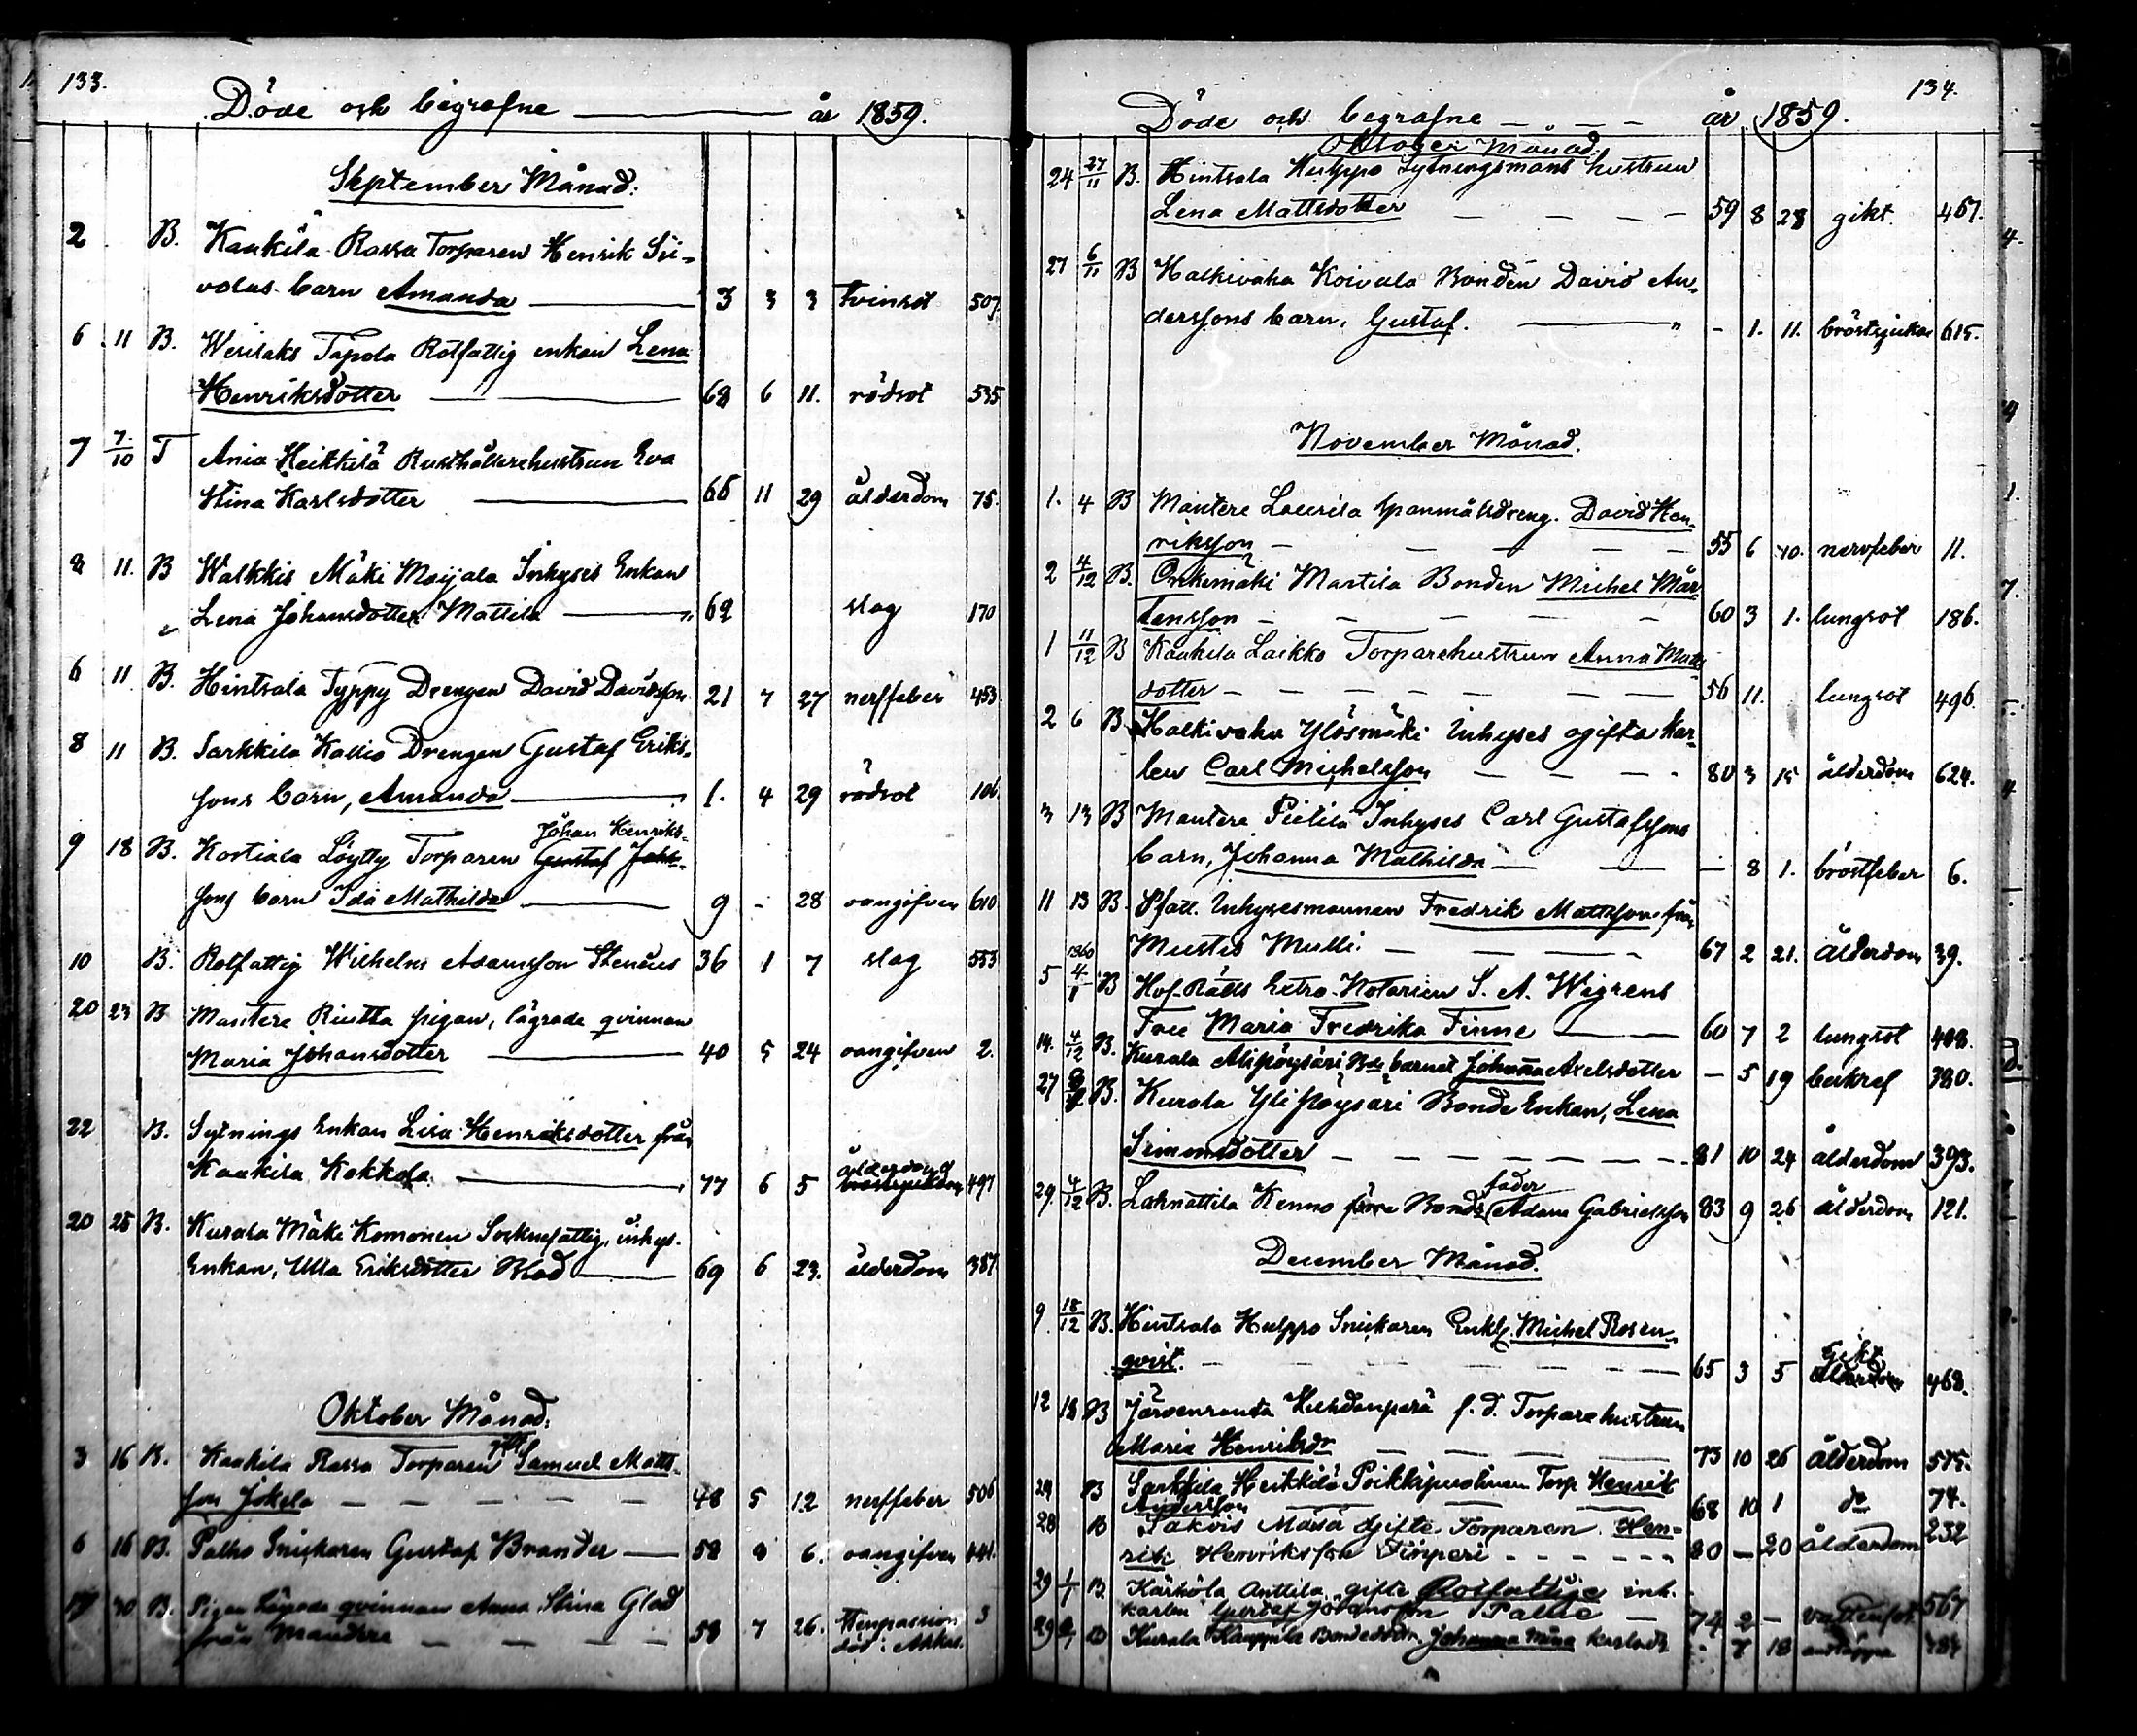 133.
Döde och begrafne år 1859.
September Månad:
2 B. Kaukila Rassa Torparen Henrik Sii-
volas barn Amanda 3 3 3 tvinsot 507.
6 11 B. Wesilaks Tapola Rotfattig enkan Lena
Henriksdotter 68 6 11. rödsot 535
7 7/10 T Ania Heikkilä Rusthållarehustrun Eva
Stina Karlsdotter 66 11 29 ålderdom 75.
8 11. B Walkkis Mäki Maijala Inhyses Enkan
Lena Johansdotter Mattila 62 slag 170
6 11 B. Hintsala Typpy Drengen David Davidsson 21 7 27 nerffeber 453.
8 11 B. Sarkkila Kallio Drengen Gustaf Eriks-
sons barn, Amanda 1. 4 29 rödsot 106.
Johan Henriks-
9 18 B. Kortiala Löytty Torparen Gustaf Johs-
sons barn Ida Mathilda 9 - 28 oangifven 610
10 B. Rotfattig Wilhelm Adamsson Stenius 36 1 7 slag 553
20 23 B Mantere Riutta pigan, lägrade qvinnan
Maria Johansdotter 40 5 24 oangifven 2.
22 B. Sytnings Enkan Lisa Henriksdotter från
Kaukila Kokkola 77 6 5 ålderdom 497
20 25 B. Kurala Mäki Komonen Socknefattig, inhys.
Enkan, Ulla Eriksdotter Blad 69 6 23. ålderdom 387.
Oktober Månad:
3 16 B. Kaukila Rassa Torparen gift Samuel Matts-
son Jokela 48 5 12 nerffeber 506
6 16 B. Palho Snickaren Gustaf Brander 58 8 6. oangifven 441.
17 30 B. Pigan Lägrade qvinnan Anna Stina Glad
från Mantere 58 7 26. död i 3
134.
Döde och begrafne år 1859.
Oktober Månad.
24 27/11 B. Hintsala Hulppo Sytningsmans hustrun
Lena Mattsdotter 59 8 28 gikt. 467.
27 6/11 B Halkivaha Koivula Bonden David An-
derssons barn, Gustaf. - 1. 11. bröstsjuka 615.
November Månad.
1. 4 B Mantere Laurila Spanmålsdreng. David Hen-
riksson 55 6 10. nervfeber 11.
2 4/12 B. Onkemäki Martila Bonden Michel Mår-
tensson 60 3 1. lungsot 186.
1 11/12 B Kaukila Laikko Torparehustrun Anna Matts
dotter 56 11. lungsot 496.
2 6 B. Halkivaha Ylösmäki Inhyses ogifta kar-
len Carl Michelsson 80 3 15 ålderdom 624.
3 13 B Mantere Pietilä Inhyses Carl Gustafssons
barn, Johanna Mathilda - 8 1. bröstfeber 6.
11 13 B. Sfatt. Inhysesmannen Fredrik Mattsson från
Mustis Mulli. 67 2 21. ålderdom 39.
1860
5 4/1 B Hof-Rätts Extra Notarien S. A. Wigrens
Fru Maria Fredrika Finne 60 7 2 lungsot 408.
14. 4/12 B. Kurala Alipöysäri Bde barnet Johanna Axelsdotter - 5 19 beskref 380.
27 B. Kurala Ylipöysäri Bonde Enkan, Lena
Simonsdotter 81 10 24 ålderdom 393.
29. 4/12 B. Lahnattila Kenno förre Bonds fader Adam Gabrielsson 83 9 26 ålderdom 121.
December Månad.
9. 18/12 B. Hintsala Hulppo Snickaren Enkl. Michel Rosen-
qvist. 65 3 5 Gikt 468.
12 18 B Järvenranta Hiidenperä f. d. Torparehustrun
Maria Henriksdr 73 10 26 ålderdom 575.
24 B Sarkkila Heikkilä Torp Henrik
Andersson 68 10 1 do 74.
28 B Sakois Massa Gifte Torparen Hen-
rik Henriksson 80 - 20 ålderdom 232
29 1/1 B Kärkölä Anttila gifte Rotfattige inh.
karlen Gustaf Johansson Pallie 74 2 - vattensot 567
29 B Kurala Kauppila Johanna Karlsdr 7 18 andtäppa